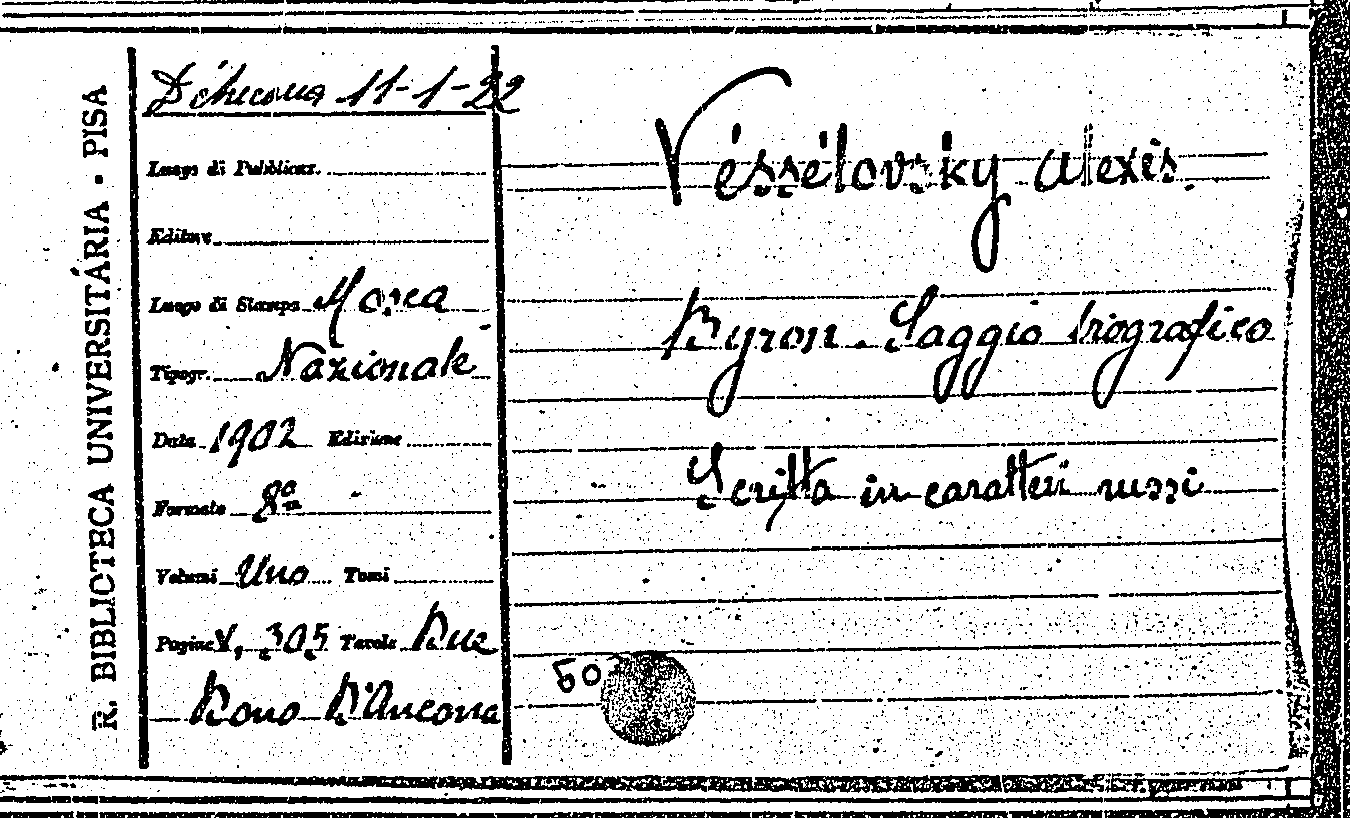 R. BIBLIOTECA UNIVERSITÁRIA · PISA
D'Ancona 11-1-22
Luogo di Pubblicaz.
Editore
Luogo di Stampa Mosca
Tipogr. Nazionale
Data 1902 Edizione
Formato 8º
Volumi Uno Tomi
Pagine V, 305 Tavole Due
Dono D'Ancona
Véssélovsky Alexis.
Byron. Saggio biografico
Scritta in caratteri russi
50